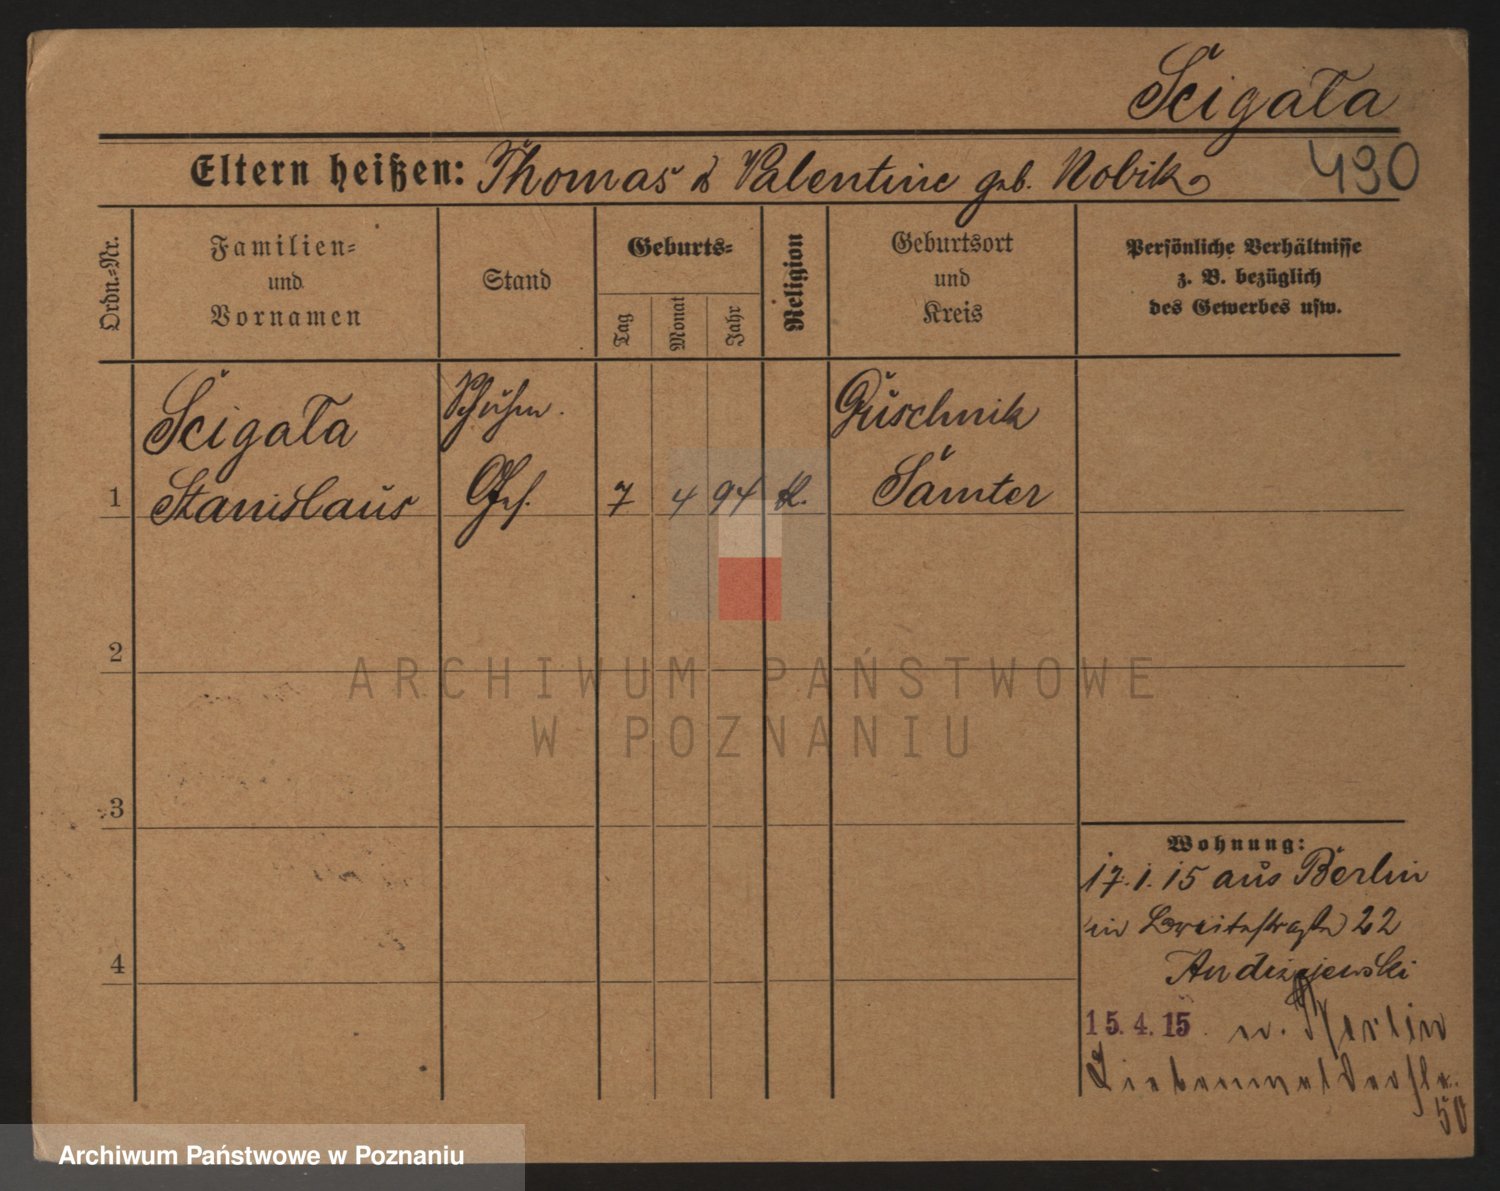 Ścigała
490
Eltern heißen: Thomas & Valentine geb. Nobik
Ordn.=Nr.
Familien=
und
Vornamen
Stand
Geburts=
Tag
Monat
Jahr
Religion
Geburtsort
und
Kreis
Persönliche Verhältnisse
z. B. bezüglich
des Gewerbes usw.
Ścigała
Schuhm.
Guschnik
1
Stanislaus
Ghf.
7
4
94
k.
Samter
2
ARCHIWUM PAŃSTWOWE
W POZNANIU
3
Wohnung:
17.1.15 aus Berlin
in Breitestraße 22
4
Andrzejewski
15.4.15 n. Berlin
Liebenwalderstr.
50
Archiwum Państwowe w Poznaniu